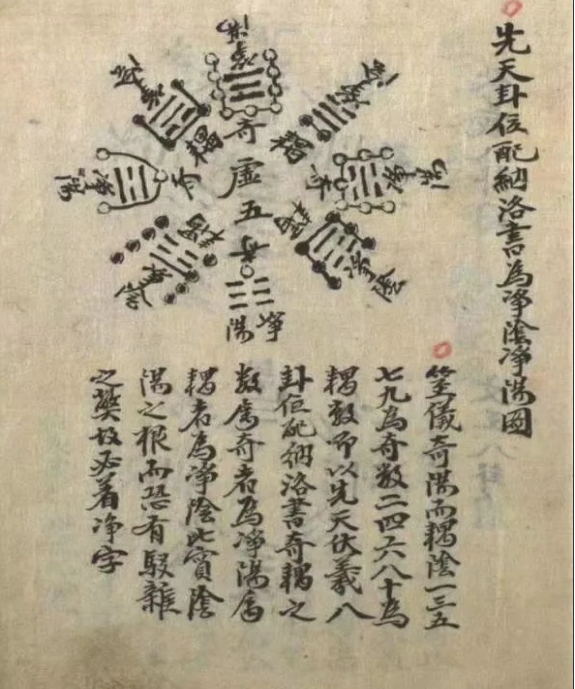 先天卦位配納洛書為净陰净陽圖
奇
耦
奇
耦
虛
五
奇
净
陽
筮儀奇陽而耦陰一三五
七九為奇數二四六八十為
耦數卽以先天伏羲八
卦位配納洛書奇耦之
數屬奇者為净陽屬
耦者為净陰此實陰
陽之根而恐有駁雜
之獘故必着净字